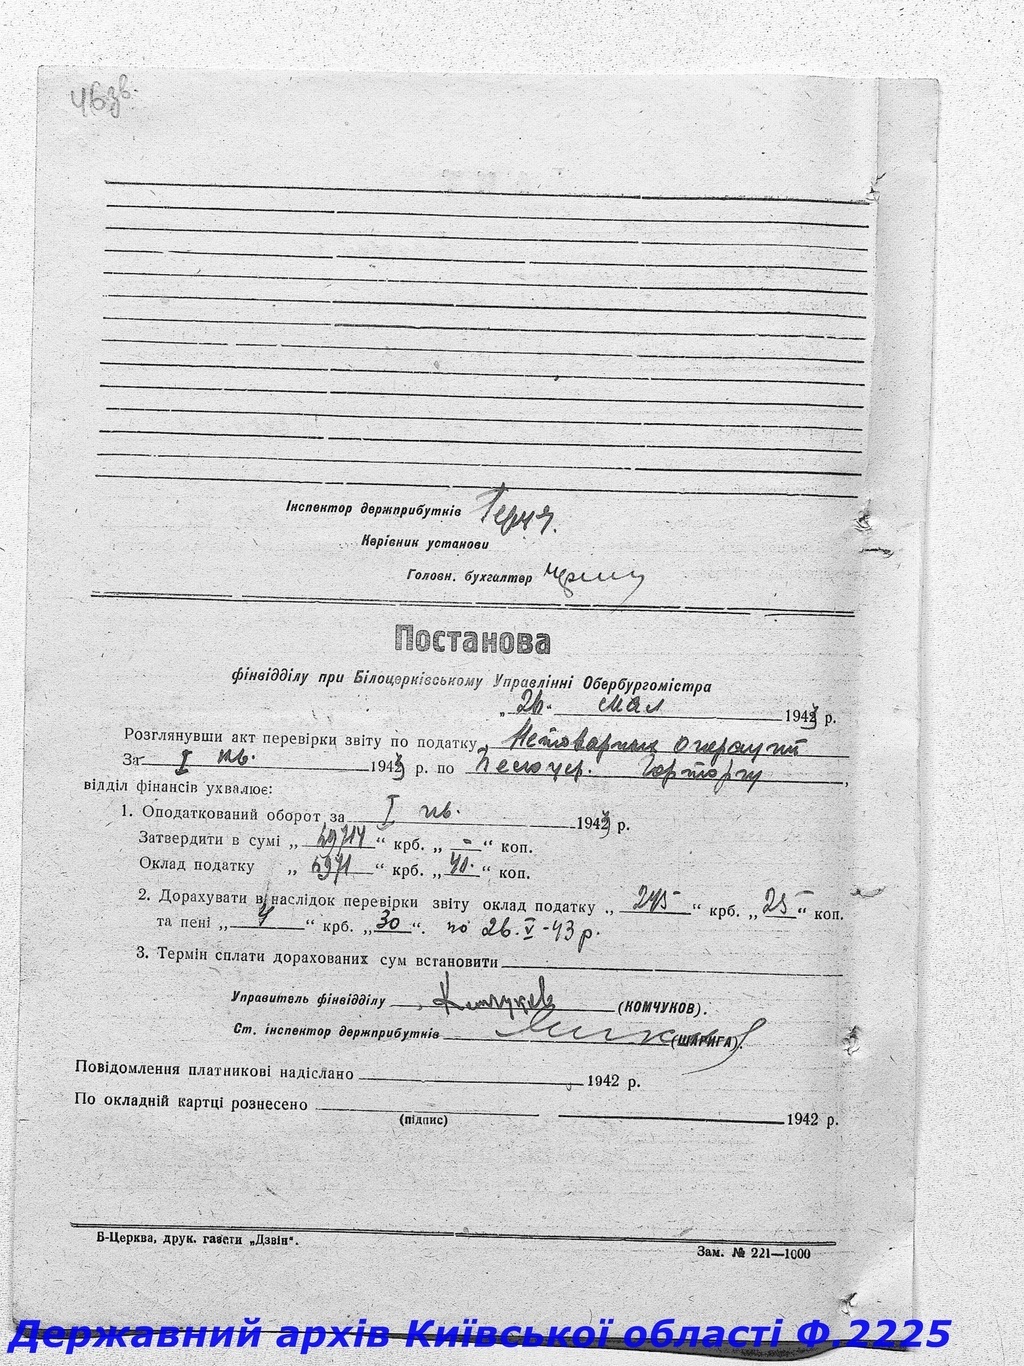 46 зв.
Інспектор держприбутків
Керівник установи
Головн. бухгалтер
Постанова
фінвідділу при Білоцерківському Управлінні Обербургомістра
„ 26. мая 1943 р.
Розглянувши акт перевірки звіту по податку Нетоварних операцій
За I кв. 1943 р. по Білоцер. Горторгу,
відділ фінансів ухвалює:
1. Оподаткований оборот за I кв. 1943 р.
Затвердити в сумі „ 59714 “ крб. „ - “ коп.
Оклад податку „ 5971 “ крб. „ 40. “ коп.
2. Дорахувати в наслідок перевірки звіту оклад податку „ 245 “ крб. „ 25 “ коп.
та пені „ 4 “ крб. „ 30 “. по 26.V-43 р.
3. Термін сплати дорахованих сум встановити
Управитель фінвідділу Комчуков (КОМЧУКОВ).
Ст. інспектор держприбутків (ШАРИГА).
Повідомлення платникові надіслано 1942 р.
По окладній картці рознесено 1942 р.
(підпис)
Б-Церква, друк. газети „Дзвін“.
Зам. № 221—1000
Державний архів Київської області Ф.2225